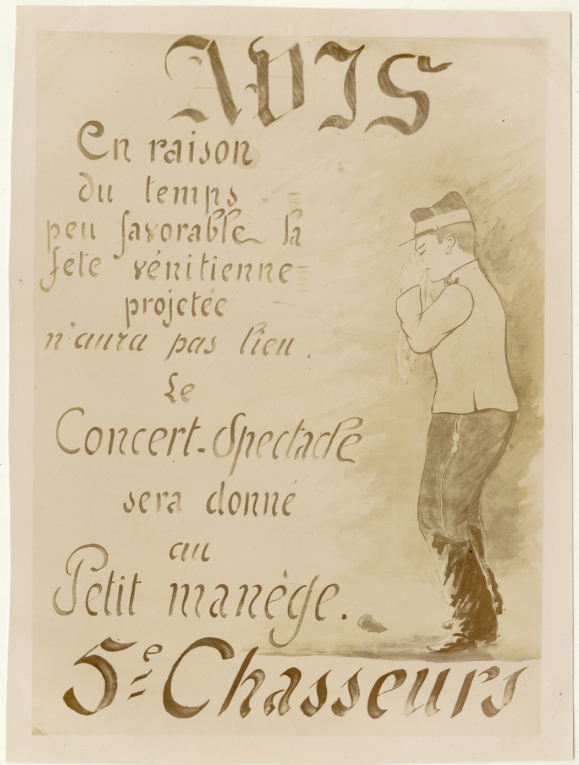 AVIS
En raison
du temps
peu favorable la
fête vénitienne
projetée
n'aura pas lieu.
Le
Concert-Spectacle
sera donné
au
Petit manège.
5e Chasseurs